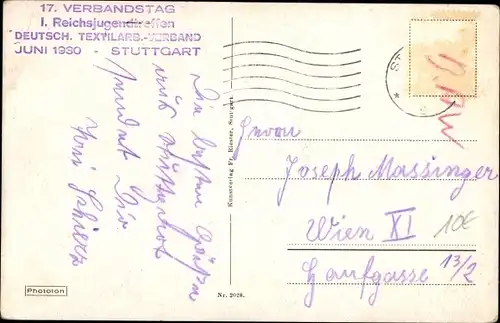 17. VERBANDSTAG
I. Reichsjugendtreffen
DEUTSCH. TEXTILARB.-VERBAND
JUNI 1930 - STUTTGART
Die besten Grüße
aus Stuttgart
sendet Dir
Kunstverlag Fr. Riester, Stuttgart.
Herrn
Joseph Massinger
Wien XI
Hanfgasse 13/2
10€
Phototon
Nr. 2028.